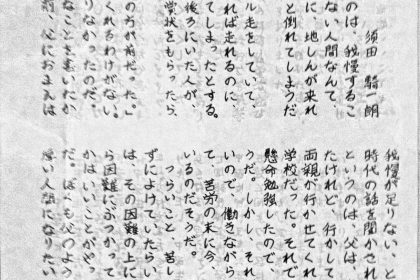 須田 賢一朗
のは、我慢するこ
ない人間なんて、
に、地しんが来れ
と倒れてしまうだ
ル走をしていて、
れば走れるのに、
てしまったとする。
後ろにいた人が、
賞状をもらったら、
の方が前だった。」
くれるわけがない。
りなかったのだ。
なことを書いたか
前、父におまえは
我慢が足りない、と
時代の話を聞かされ
というのは、父は
たけれど、行かして
両親が行かせてくれ
学校だった。それで
懸命勉強したので、
うだ。しかし、それ
いので、働きながら
て、苦労の末に今、
いるのだそうだ。
つらいこと、苦し
ずによけていたらい
は、その困難の上に
ら困難にぶつかって
かはいいことがやっ
だ。ぼくも父のよう
強い人間になりたい